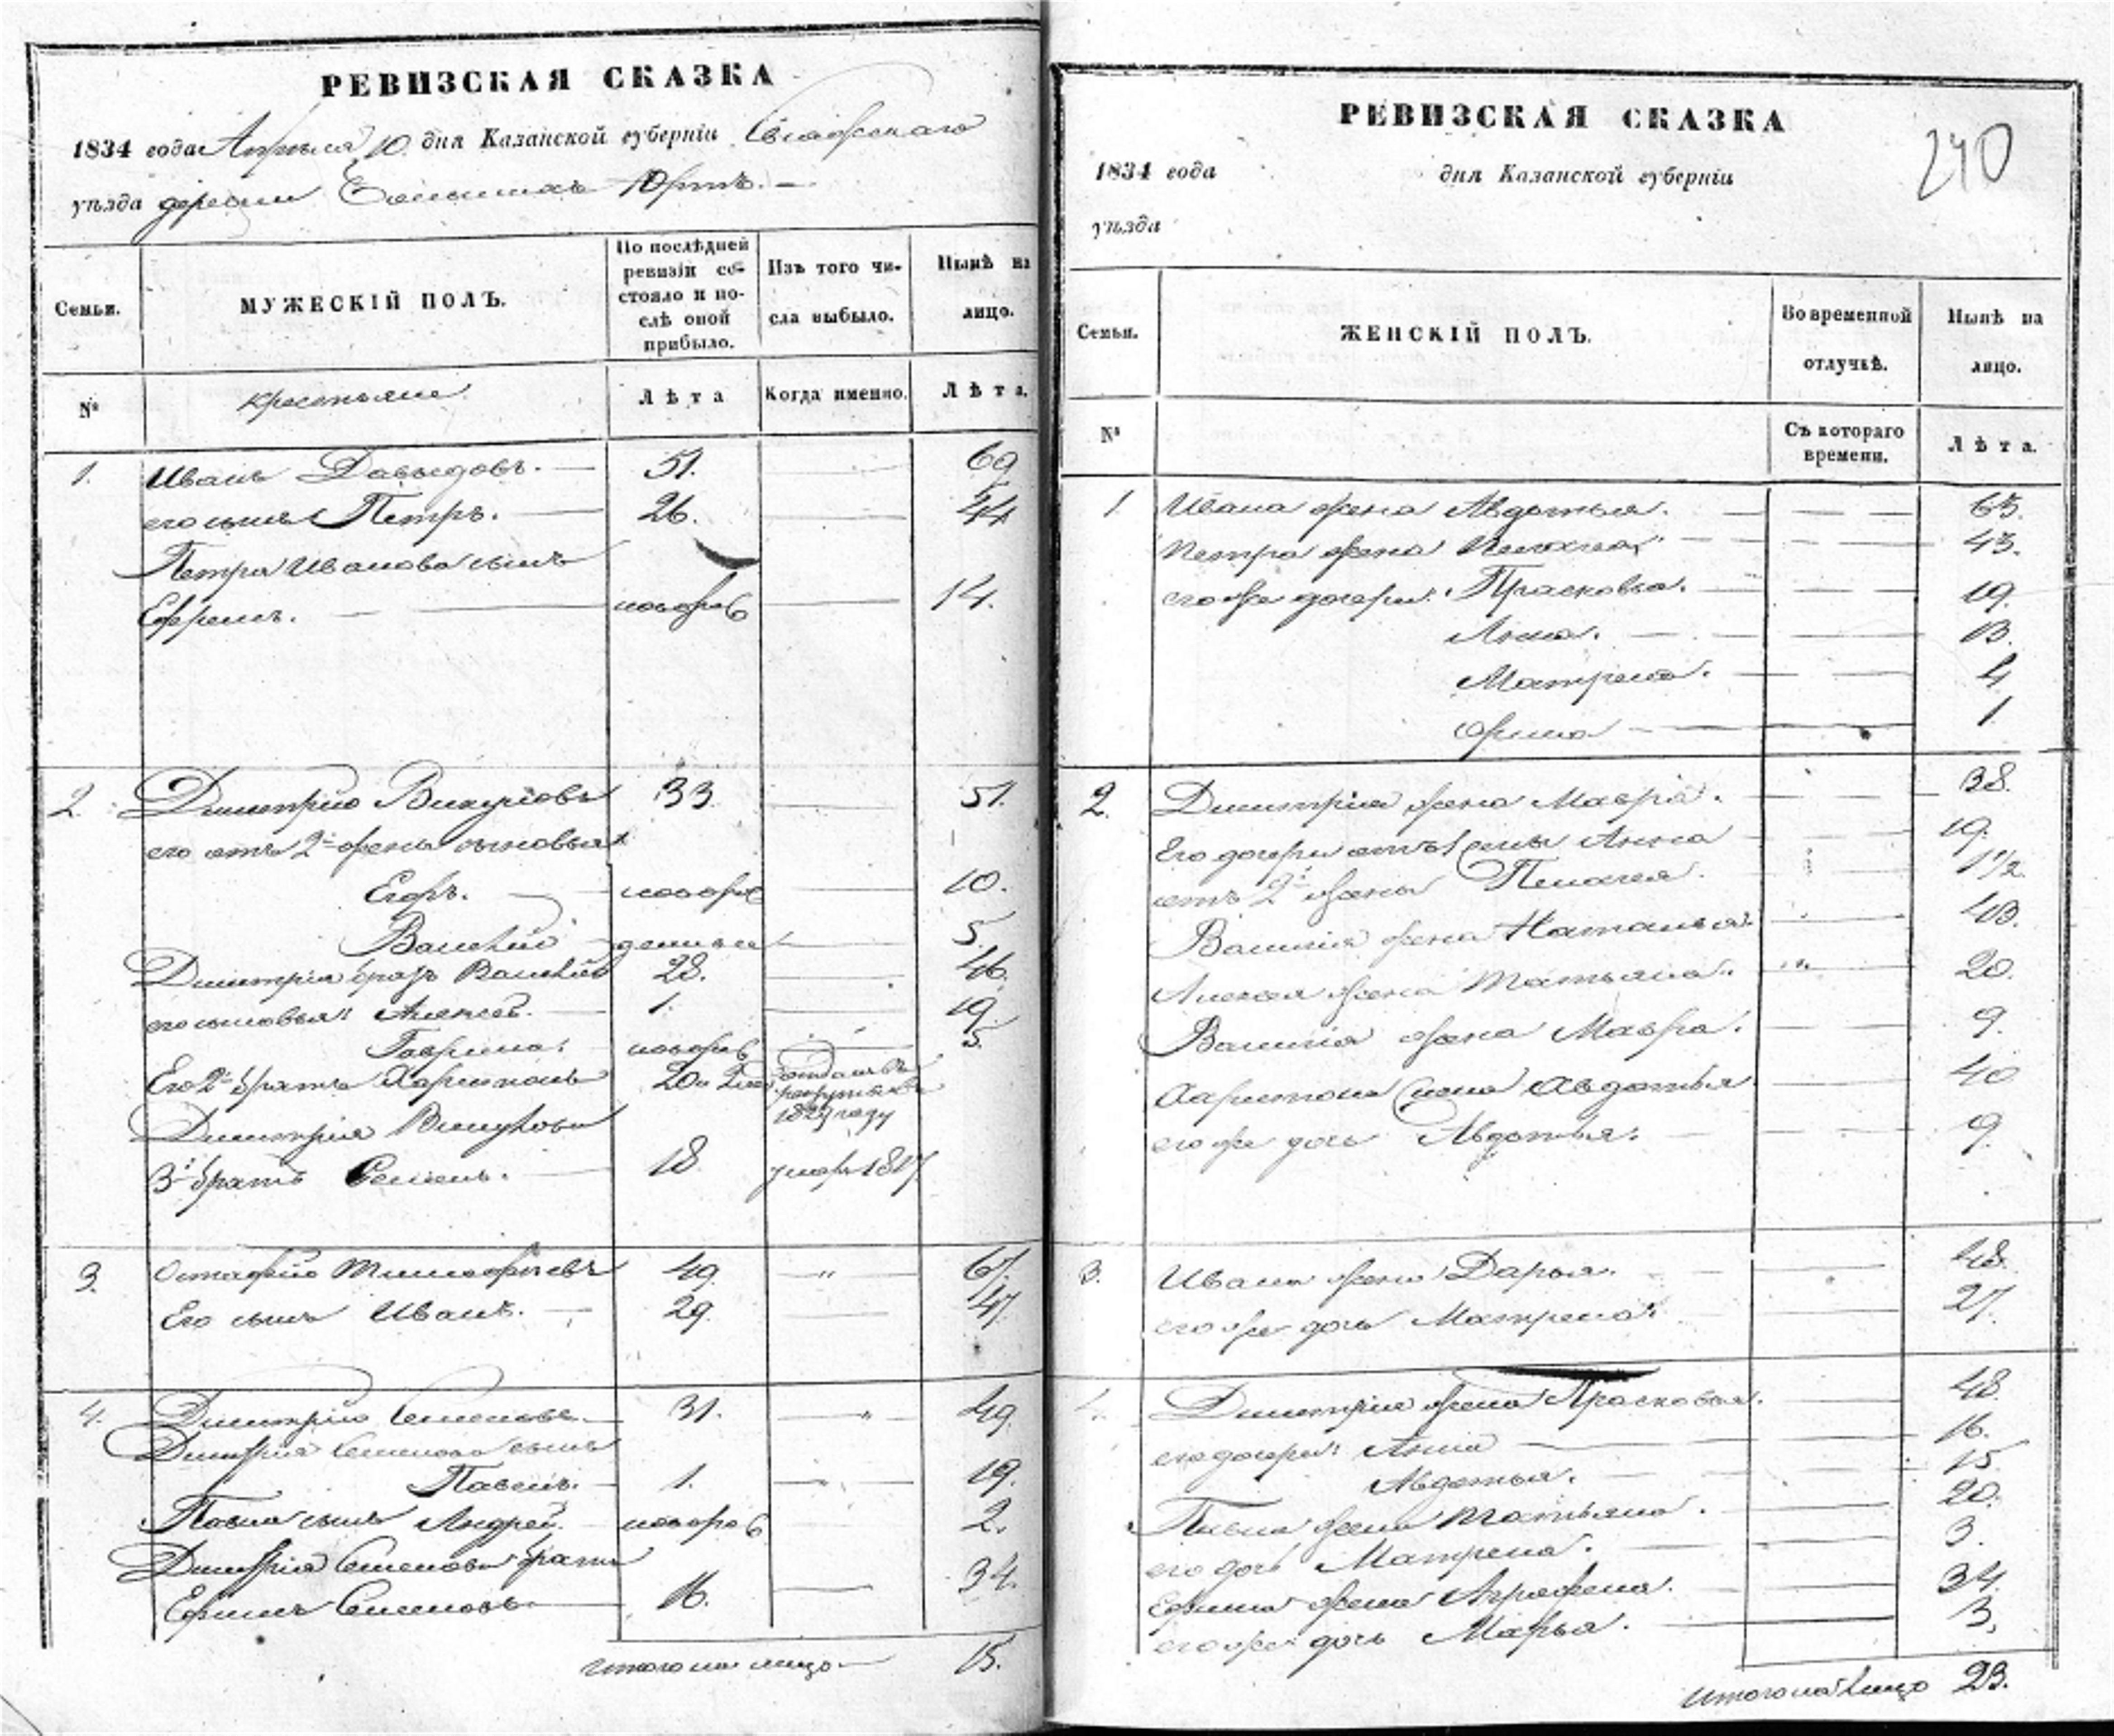 РЕВИЗСКАЯ СКАЗКА
1834 года Апреля 10 дня Казанской губерніи Спасскаго
уѣзда деревни Юртъ.
Семьи.
МУЖЕСКІЙ ПОЛЪ.
По послѣдней
ревизіи со-
стояло и по-
слѣ оной
прибыло.
Изъ того чи-
сла выбыло.
Нынѣ на
лицо.
№
крестьяне
Лѣта
Когда именно.
Лѣта.
1. Иванъ Давыдовъ. 51. 69
его сынъ Петръ. 26. 44
Петра Иванова сынъ
Ефремъ. новорож 14.
2. Димитрій Викуловъ 33 51.
его отъ 2й жены сыновья
Егоръ. новорож 10.
Василій 5.
Димитрія братъ Василій 28. 46.
его сыновья: Алексей. 1. 19.
Гаврила. новорож 5.
Его 2й братъ Харитонъ 20 отданъ въ
рекруты въ
1827 году
Димитрія Викулова
3й братъ Семенъ. 18 умеръ 1817.
3. Остафій Тимофеевъ 49 „ 67.
Его сынъ Иванъ. 29. 47
4. Димитрій Семеновъ. 31. „ 49.
Димитрія Семенова сынъ
Павелъ. 1. „ 19.
Павла сынъ Андрей. новорож 2.
Димитрія Семенова братъ
Ефимъ Семеновъ 16. 34.
Итого на лицо 15.
РЕВИЗСКАЯ СКАЗКА
240
1834 года дня Казанской губерніи
уѣзда
Семьи.
ЖЕНСКІЙ ПОЛЪ.
Во временной
отлучкѣ.
Нынѣ на
лицо.
№
Съ котораго
времени.
Лѣта.
1. Ивана жена Авдотья. 63.
Петра жена Пелагея. 43.
его же дочери: Прасковья. 19.
Анна. 13.
Матрена. 4
Орина 1
2. Димитрія жена Мавра. 38.
Его дочери отъ 1 жены Анна 19.
отъ 2й жены Пелагея. 1 1/2
Василія жена Наталья. 43.
Алексея жена Татьяна. 20.
Василія жена Мавра. 9.
Харитона жена Авдотья 40
его же дочь Авдотья. 9.
3. Ивана жена Дарья. 48.
его же дочь Матрена. 27.
4. Димитрія жена Прасковья. 48.
его дочери: Анна 16.
Авдотья. 15
Павла жена Татьяна. 20.
его дочь Матрена. 3.
Ефима жена Аграфена. 34.
его же дочь Марья. 3.
Итого на лицо 23.